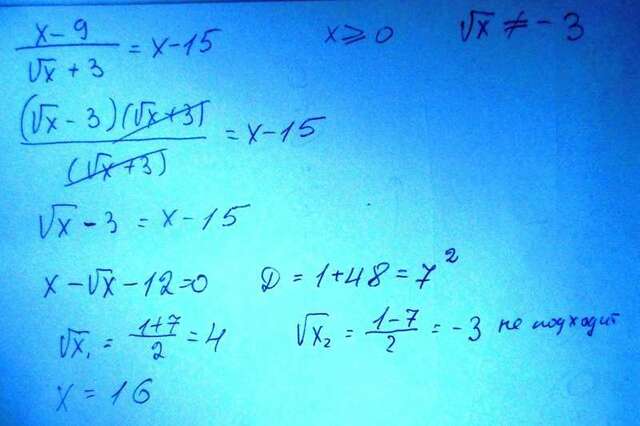 (x-9)/(√x+3) = x-15    x⩾0    √x ≠ -3
((√x-3)(√x+3))/(√x+3) = x-15
√x - 3 = x-15
x-√x-12=0    D = 1+48 = 7²
√x₁ = (1+7)/2 = 4    √x₂ = (1-7)/2 = -3 не подходит
x = 16